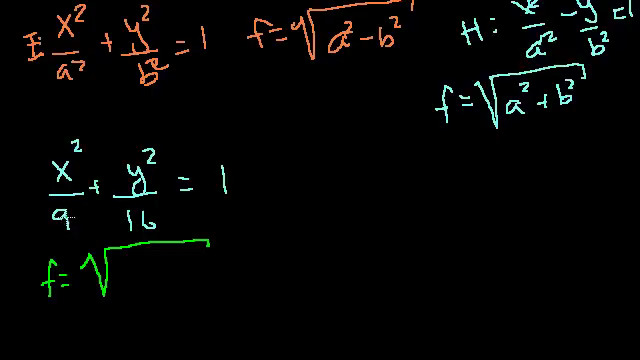 E: x²/a² + y²/b² = 1   f = √(a² - b²)   H: x²/a² - y²/b² = 1
f = √(a² + b²)
x²/9 + y²/16 = 1
f = √